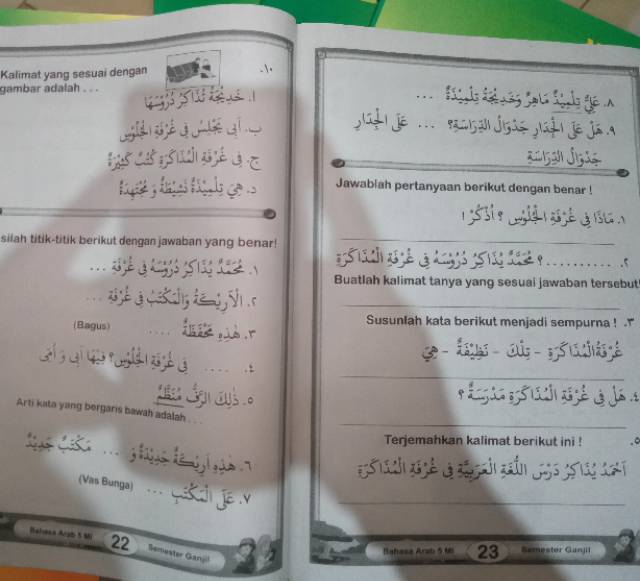 ١٠.
Kalimat yang sesuai dengan
gambar adalah . . .
أ. خديجة تذاكر دروسها
ب. أبي يجلس في غرفة الجلوس
ج. في غرفة المذاكرة كتب كثيرة
د. هي تلميذة نشيطة و مجتهدة
silah titik-titik berikut dengan jawaban yang benar!
١. محمد يذاكر دروسه في غرفة ...
٢. الأريكة والمكتب في غرفة ...
٣. هذه محفظة .... (Bagus)
٤. .... في غرفة الجلوس؟ فيها أبي و أمي
٥. ذلك الرف منظم
Arti kata yang bergaris bawah adalah . . .
٦. هذه أريكة جديدة و ... مكتب جديد
٧. على المكتب ... (Vas Bunga)
Bahasa Arab 5 MI
22
Semester Ganjil
٨. علي تلميذ ماهر وخديجة تلميذة ...
٩. هل على الجدار جدول الدراسة؟ ... على الجدار
جدول الدراسة
Jawablah pertanyaan berikut dengan benar !
١. ماذا في غرفة الجلوس ؟ أذكر !
٢. ...........؟ محمد يذاكر دروسه في غرفة المذاكرة
Buatlah kalimat tanya yang sesuai jawaban tersebut!
٣. Susunlah kata berikut menjadi sempurna !
غرفة المذاكرة - تلك - نظيفة - هي
٤. هل في غرفة المذاكرة مدرسة ؟
٥. Terjemahkan kalimat berikut ini !
أحمد يذاكر درس اللغة العربية في غرفة المذاكرة
Bahasa Arab 5 MI
23
Semester Ganjil